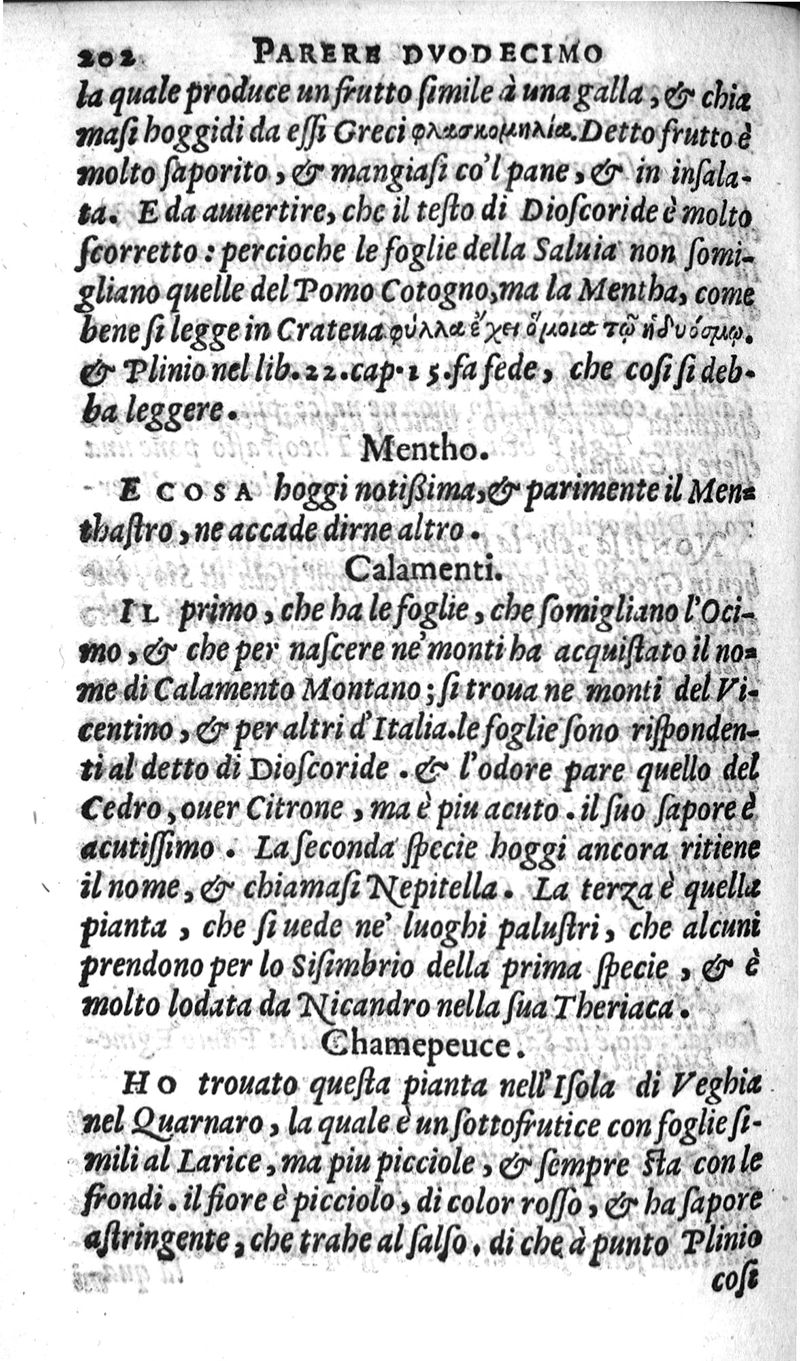 202 PARERE DVODECIMO
la quale produce un frutto ſimile à una galla, & chia
maſi hoggidi da eſſi Greci φλασκομηλία. Detto frutto è
molto ſaporito, & mangiaſi co'l pane, & in inſala-
ta. E da auuertire, che il teſto di Dioſcoride è molto
ſcorretto: percioche le foglie della Saluia non ſomi-
gliano quelle del Pomo Cotogno, ma la Mentha, come
bene ſi legge in Crateua φύλλα ἔχει ὅμοια τῷ ἡδυόσμῳ.
& Plinio nel lib. 22. cap. 15. fa fede, che coſi ſi deb-
ba leggere.
Mentho.
E COSA hoggi notißima, & parimente il Men-
thaſtro, ne accade dirne altro.
Calamenti.
IL primo, che ha le foglie, che ſomigliano l'Oci-
mo, & che per naſcere ne' monti ha acquiſtato il no-
me di Calamento Montano; ſi troua ne monti del Vi-
centino, & per altri d'Italia. le foglie ſono riſponden-
ti al detto di Dioſcoride. & l'odore pare quello del
Cedro, ouer Citrone, ma è piu acuto. il ſuo ſapore è
acutiſſimo. La ſeconda ſpecie hoggi ancora ritiene
il nome, & chiamaſi Nepitella. La terza è quella
pianta, che ſi uede ne' luoghi paluſtri, che alcuni
prendono per lo Siſimbrio della prima ſpecie, & è
molto lodata da Nicandro nella ſua Theriaca.
Chamepeuce.
HO trouato queſta pianta nell'Iſola di Veghia
nel Quarnaro, la quale è un ſottofrutice con foglie ſi-
mili al Larice, ma piu picciole, & ſempre ſta con le
frondi. il fiore è picciolo, di color roſſo, & ha ſapore
aſtringente, che trahe al ſalſo. di che à punto Plinio
coſi